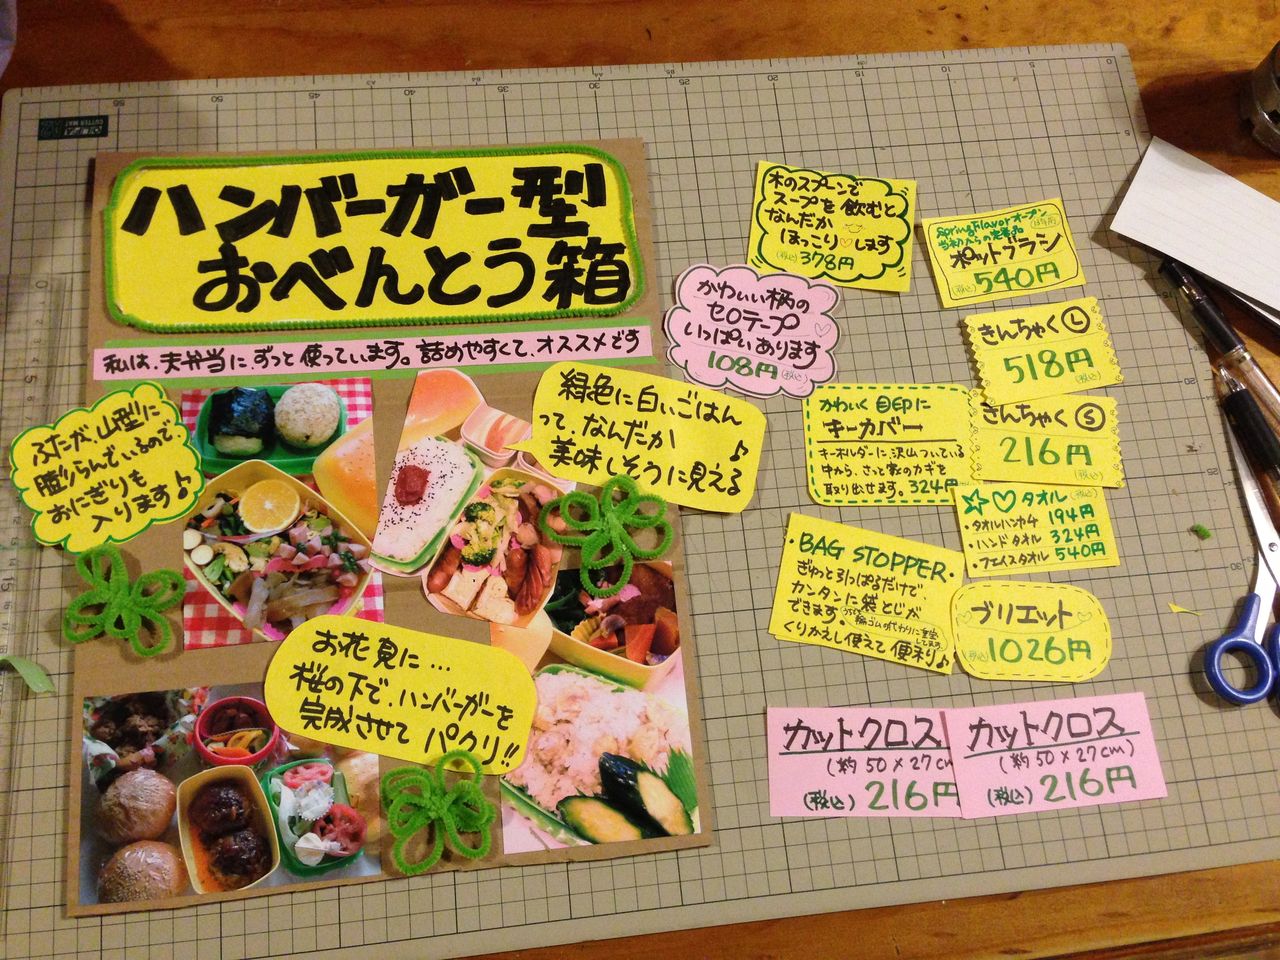 ハンバーガー型
おべんとう箱
私は、夫弁当に、ずっと使っています。詰めやすくて、オススメです
ふたが、山型に
膨らんでいるので、
おにぎりも
入ります♪
緑色に白いごはん
って、なんだか
美味しそうに見える♪
お花見に…
桜の下で、ハンバーガーを
完成させて パクリ!!
木のスプーンで
スープを飲むと、
なんだか
ほっこり♡します
(税込)378円
Spring Flavorオープン
当初からの定番品
ポットブラシ
(税込)540円
かわいい柄の
セロテープ
いっぱいあります
108円(税込)
きんちゃくⓁ
518円
(税込)
きんちゃくⓈ
216円
(税込)
かわいく目印に
キーカバー
キーホルダーに沢山ついている
中から、さっと家のカギを
取り出せます。324円
☆♡タオル(税込)
・タオルハンカチ 194円
・ハンドタオル 324円
・フェイスタオル 540円
・BAG STOPPER・
ぎゅっと引っぱるだけで、
カンタンに袋とじが
できます。
輪ゴムの代わりに重宝
してます
くりかえし使えて便利♪
ブリエット
(税込)1026円
カットクロス
(約50×27cm
(税込)216円
カットクロス
(約50×27cm)
(税込)216円
OLFA
CUTTER MAT
A2